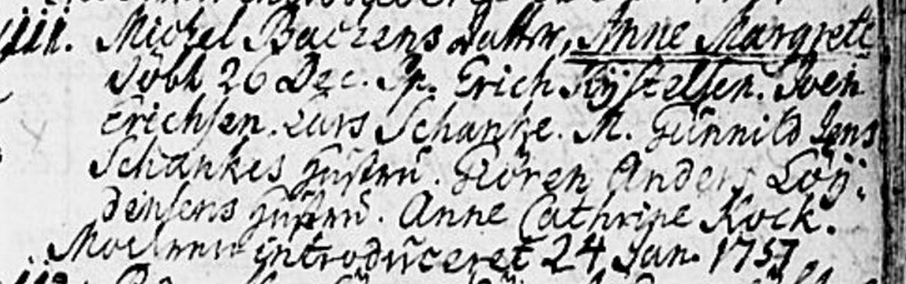 iii. Michel Bachens datter, Anne Margrete
döbt 26 Dec. Sp. Erich Kystelsen. Sven
Erichsen. Lars Schanke. M. Gunnild Jens
Schankes Hustru. Giören Anders Löy-
densens Hustru. Anne Cathrine Kock.
Moderen introduceret 24 Jan. 1757